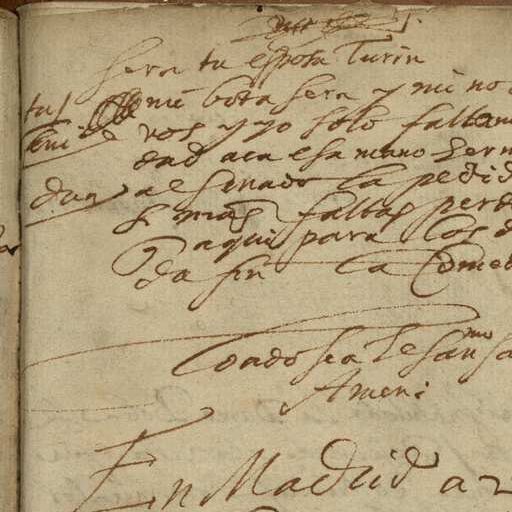 sera tu esposa Turin
tus mi bota sera y mi no
Eni vos y yo solo faltam
dad aca esa mano her
dua al senado la pedid
s mas faltas perd
aqui para los d
da fin la Come
Loado sea el san mo sa
Amen
En Madrid a 2